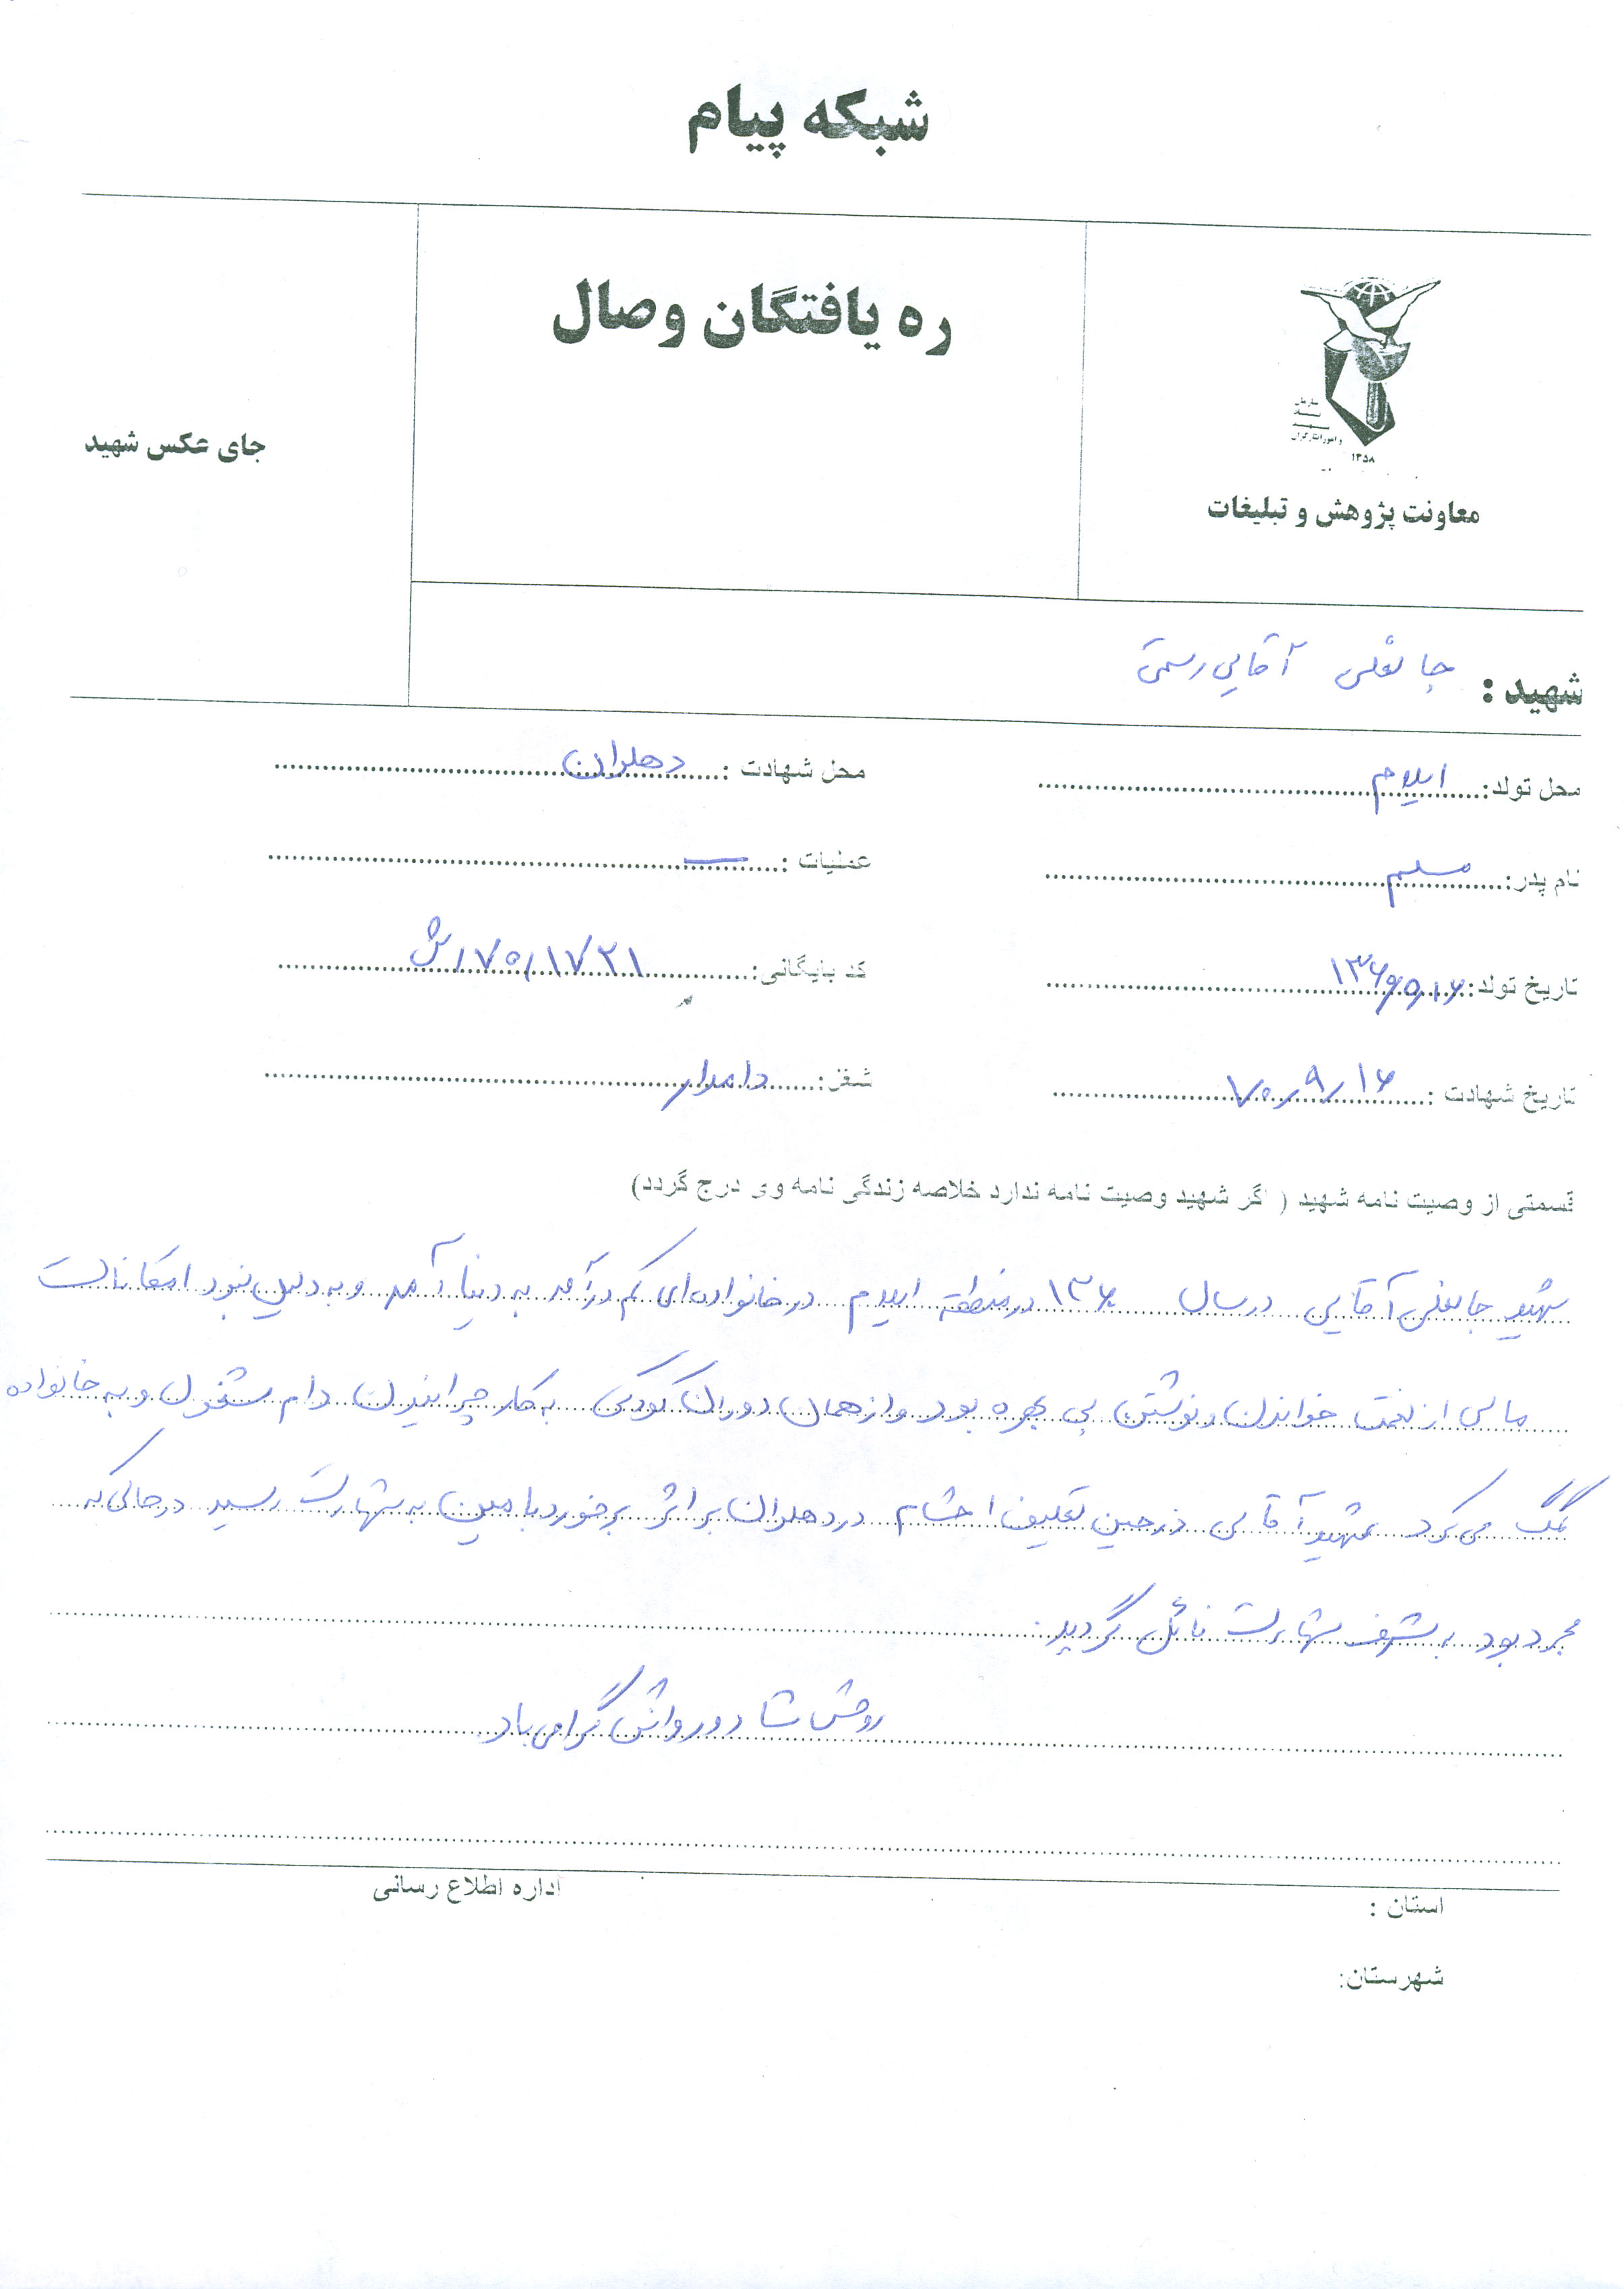 شبکه پیام
ره یافتگان وصال
جای عکس شهید
۱۳۵۸
معاونت پژوهش و تبلیغات
شهید : جانعلی آقایی رستمی
محل تولد: ایلام
محل شهادت : دهلران
نام پدر: مسلم
عملیات : ــ
تاریخ تولد:
کد بایگانی: ۱۷۰/۱۷۲۱/ش
تاریخ شهادت : ۷۰/۹/۱۶
شغل: دامدار
قسمتی از وصیت نامه شهید ( اگر شهید وصیت نامه ندارد خلاصه زندگی نامه وی درج گردد)
شهید جانعلی آقایی در سال در منطقه ایلام در خانواده ای کم درآمد به دنیا آمد و به دلیل نبود امکانات
مالی از نعمت خواندن و نوشتن بی بهره بود و از همان دوران کودکی به کار چرانیدن دام مشغول و به خانواده
کمک می کرد شهید آقایی در حین تعلیف احشام در دهلران بر اثر برخورد با مین به شهادت رسید در حالی که
مجرد بود به شرف شهادت نائل گردید.
روحش شاد و روانش گرامی باد.
اداره اطلاع رسانی
استان :
شهرستان: